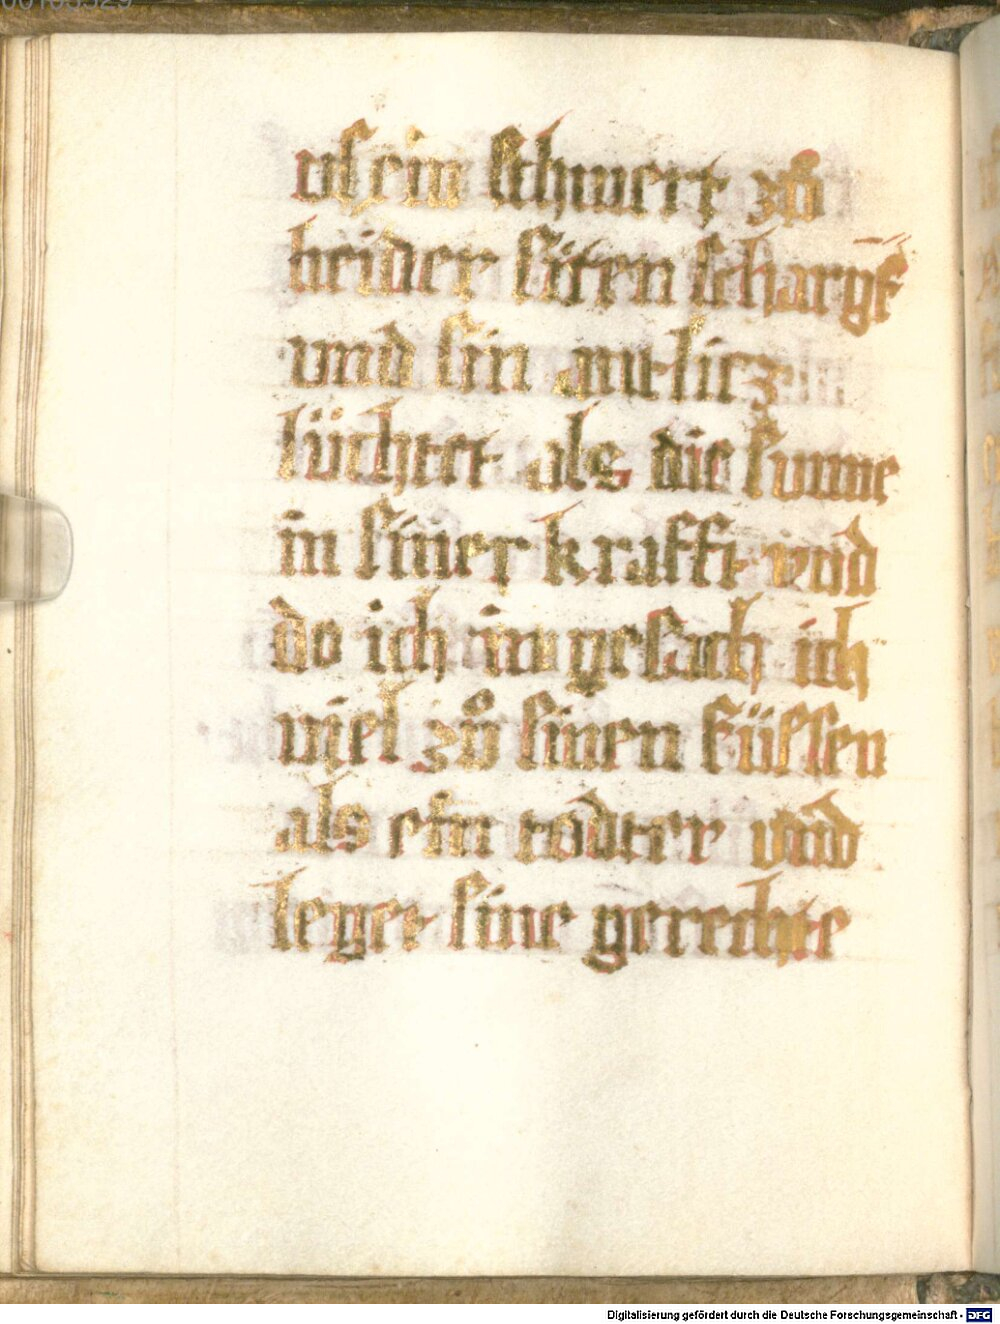 00105529
vſ ein ſchwert zů
beider ſiten ſcharpf
vnd ſin antlicz
lüchtet als die ſunne
in ſiner krafft vnd
do ich in geſach ich
viel zů ſinen füſſen
als ein todter vnd
leget ſine gerechte
Digitalisierung gefördert durch die Deutsche Forschungsgemeinschaft - DFG